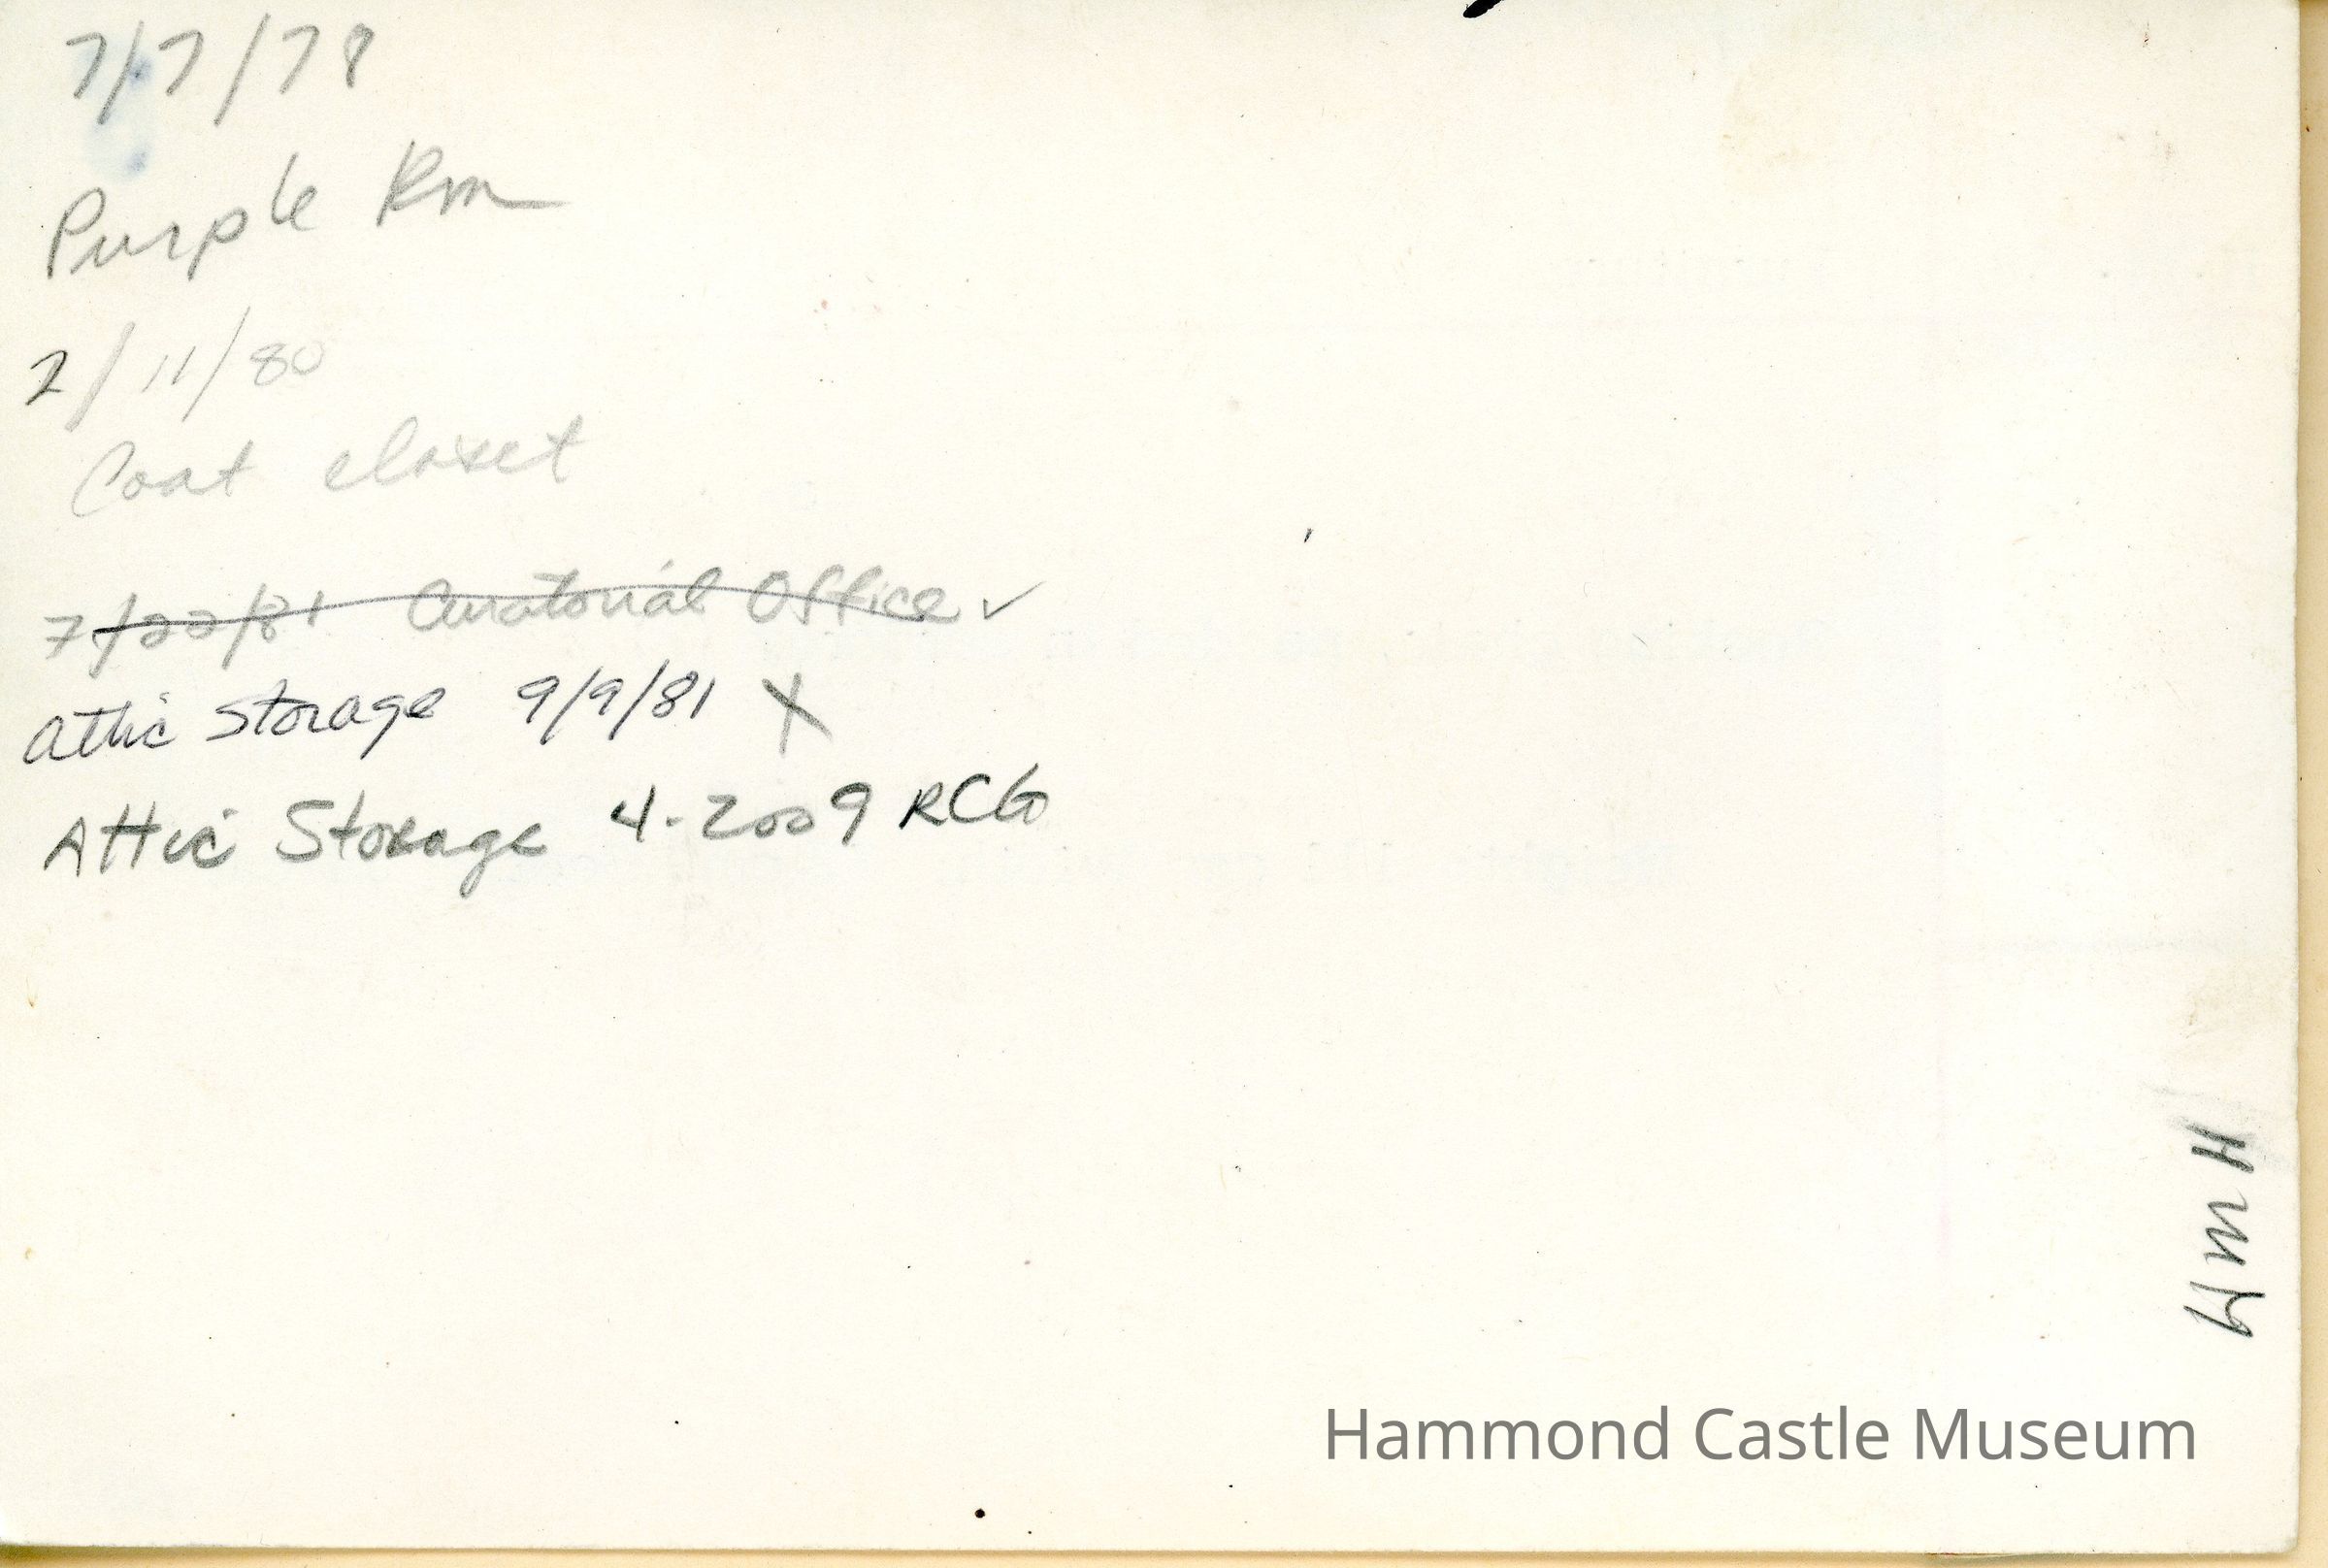 7/7/78
Purple Rm
2/11/80
Coat closet
7/22/81 Curatorial Office ✓
Attic Storage 9/9/81 X
Attic Storage 4-2009 RCG
Hammond Castle Museum